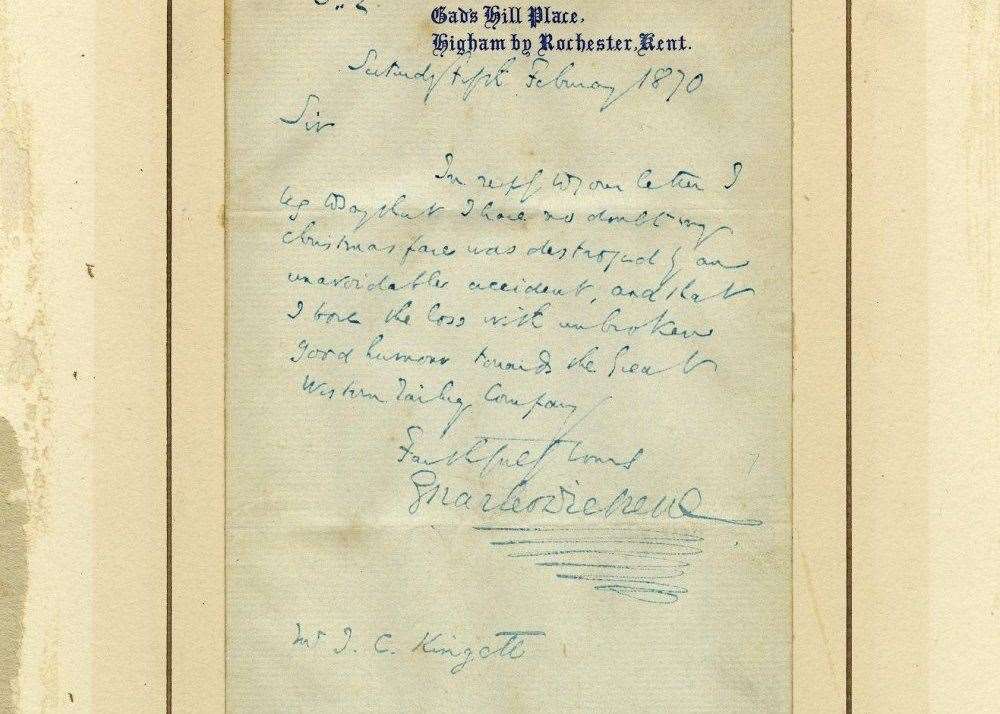 Gad's Hill Place,
Higham by Rochester, Kent.
Saturday fifth February 1870
Sir
In reply to your letter I
beg to say that I have no doubt my
christmas fare was destroyed by an
unavoidable accident, and that
I bore the loss with unbroken
good humour towards the Great
Western Railway Company
Faithfully Yours
Charles Dickens
Mr J. C. Kingett